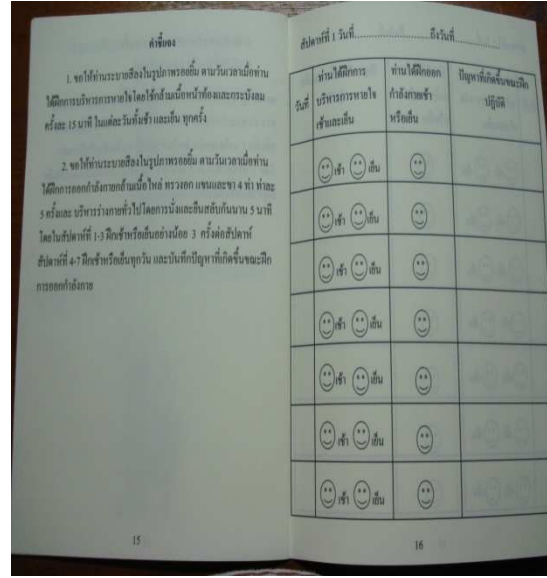 คำชี้แจง
1. ขอให้ท่านระบายสีลงในรูปภาพรอยยิ้ม ตามวันเวลาเมื่อท่าน
ได้ฝึกการบริหารการหายใจโดยใช้กล้ามเนื้อหน้าท้องและกระบังลม
ครั้งละ 15 นาที ในแต่ละวันทั้งเช้า และเย็น ทุกครั้ง
2. ขอให้ท่านระบายสีลงในรูปภาพรอยยิ้ม ตามวันเวลาเมื่อท่าน
ได้ฝึกการออกกำลังกายกล้ามเนื้อ ไหล่ ทรวงอก แขนและขา 4 ท่า ท่าละ
5 ครั้งและ บริหารร่างกายทั่วไปโดยการนั่งและยืนสลับกันนาน 5 นาที
โดยในสัปดาห์ที่ 1-3 ฝึกเช้าหรือเย็นอย่างน้อย 3 ครั้งต่อสัปดาห์
สัปดาห์ที่ 4-7 ฝึกเช้าหรือเย็นทุกวัน และบันทึกปัญหาที่เกิดขึ้นขณะฝึก
การออกกำลังกาย
15
สัปดาห์ที่ 1 วันที่..............................ถึงวันที่..................
วันที่
ท่านได้ฝึกการ
บริหารการหายใจ
เช้าและเย็น
ท่านได้ฝึกออก
กำลังกายเช้า
หรือเย็น
ปัญหาที่เกิดขึ้นขณะฝึก
ปฏิบัติ
เช้า เย็น
เช้า เย็น
เช้า เย็น
เช้า เย็น
เช้า เย็น
เช้า เย็น
เช้า เย็น
16